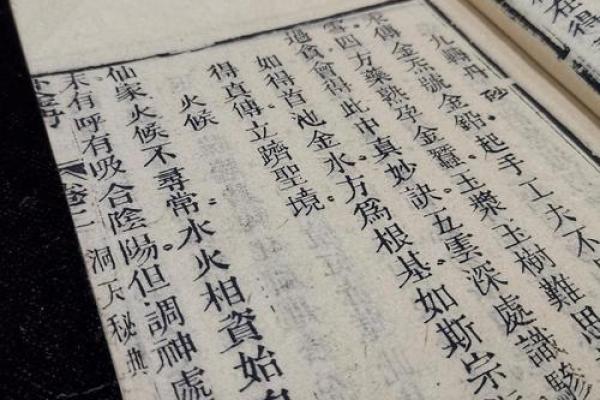 在得
九轉丹砂
傳金亦號金鉛。起手工夫不
雪。四方藥熟孕金蠶。玉漿玉樹難思
會得此中真妙訣。五雲深處識驂
如得首池金水。方爲根基。如斯宗
得真傳。立躋聖境
火候
仙家火候不尋常。水火相資始
未有呼有吸合陰陽。但調神處
卷二 洞天秘典